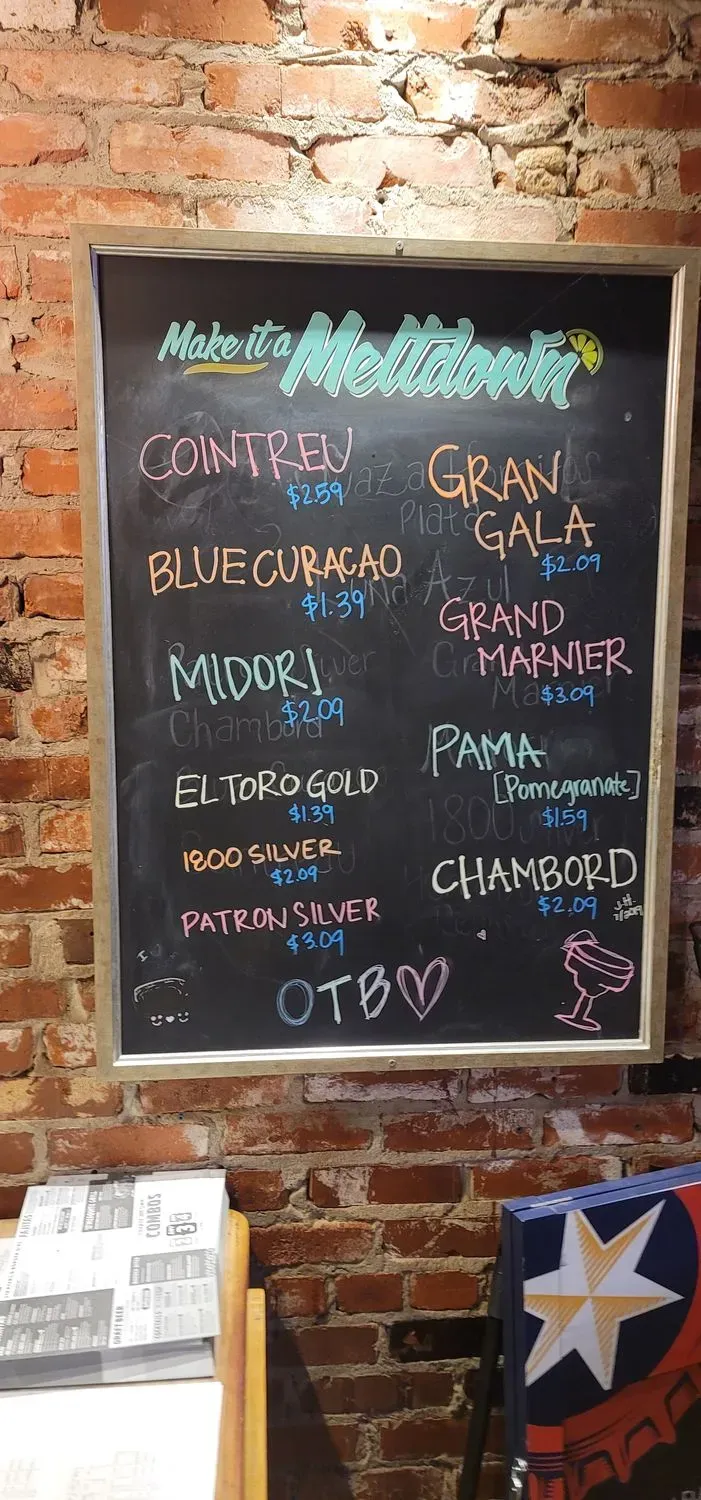 Make it a Meltdown
COINTREU
$2.59
BLUE CURACAO
$1.39
MIDORI
$2.09
EL TORO GOLD
$1.39
1800 SILVER
$2.09
PATRON SILVER
$3.09
GRAN
GALA
$2.09
GRAND
MARNIER
$3.09
PAMA
[Pomegranate]
$1.59
CHAMBORD
$2.09
J.H.
7/2019
OTB
Plata
Azul
Chambord
1800
COMBOS
DRAFT BEER